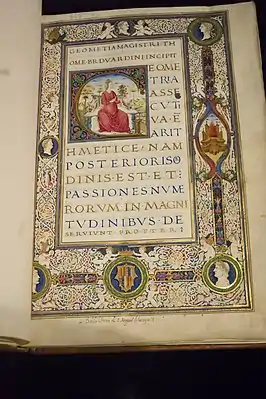 GEOMETIA MAGISTRI TH
OME BRDVARDINI INCIPIT
GEOME
TRIA
ASSE
CVT
VA E
ARIT
HMETICE NAM
POSTERIORIS O
DINIS EST ET
PASSIONES NVM
RORVM IN MAGNI
TVDINIBVS DE
SERVIVNT PROPTER